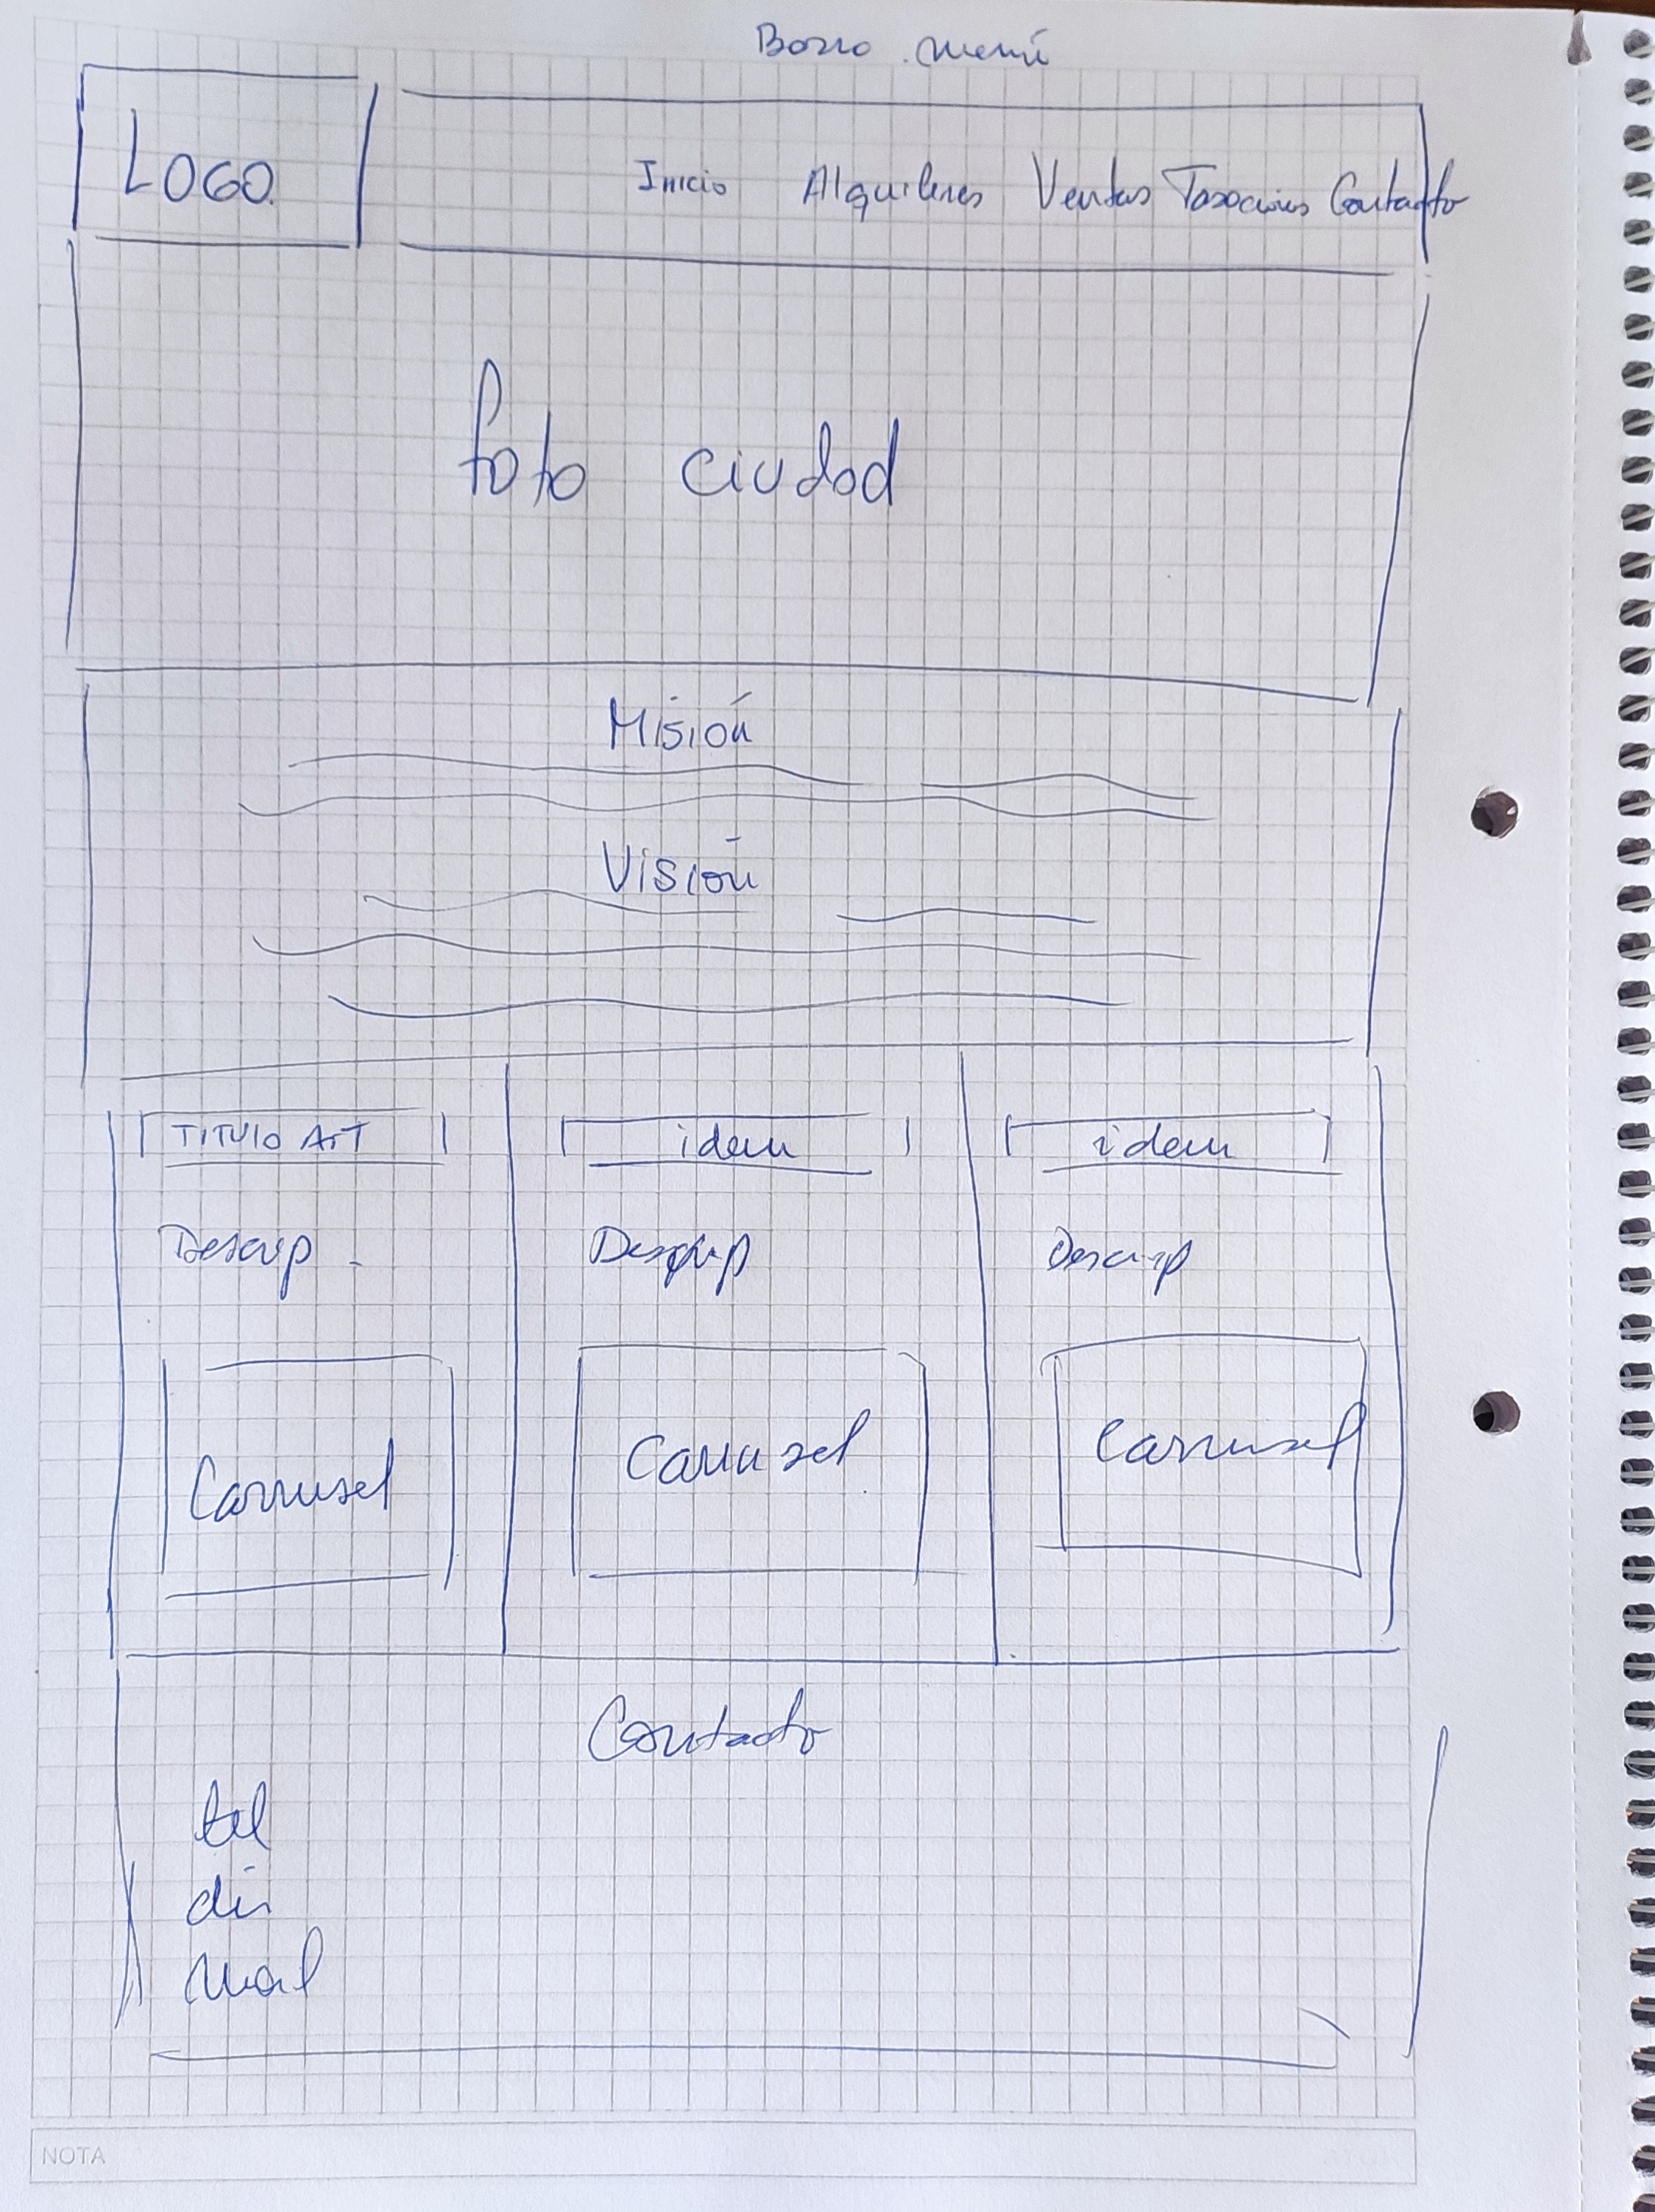 Barra menú
LOGO.
Inicio Alquileres Ventas Tasaciones Contacto
foto ciudad
Misión
Visión
TITULO ART idem idem
Descrip. Descrip Descrip
Carrusel Carrusel Carrusel
Contacto
tel
dir
mail
NOTA